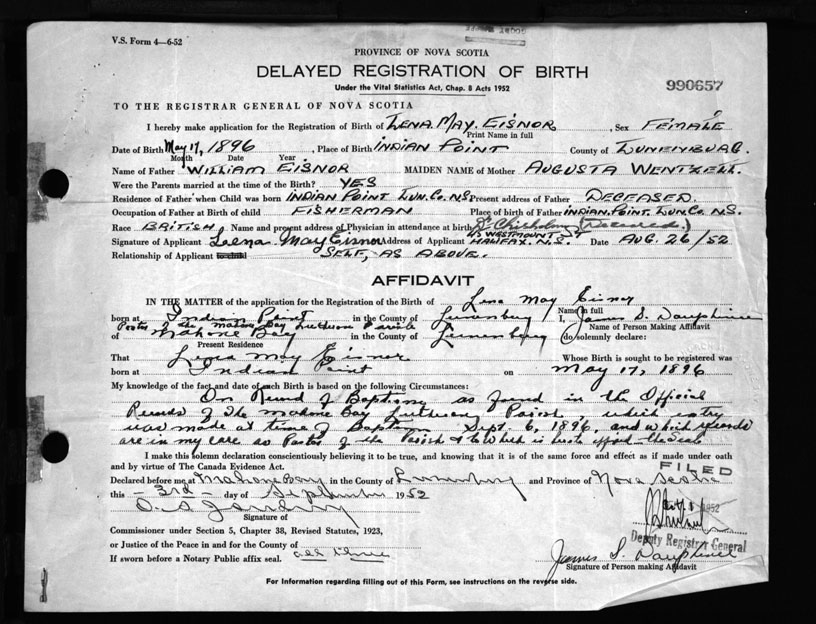 V.S. Form 4—6-52
PROVINCE OF NOVA SCOTIA
DELAYED REGISTRATION OF BIRTH
Under the Vital Statistics Act, Chap. 8 Acts 1952
990657
TO THE REGISTRAR GENERAL OF NOVA SCOTIA
I hereby make application for the Registration of Birth of LENA MAY EISNOR, Sex FEMALE
Print Name in full
Date of Birth May 17, 1896, Place of Birth INDIAN POINT County of LUNENBURG.
Month Date Year
Name of Father WILLIAM EISNOR MAIDEN NAME of Mother AUGUSTA WENTZELL.
Were the Parents married at the time of the Birth? YES
Residence of Father when Child was born INDIAN POINT LUN. CO. N.S. Present address of Father DECEASED.
Occupation of Father at Birth of child FISHERMAN Place of birth of Father INDIAN POINT, LUN. CO. N.S.
Race BRITISH Name and present address of Physician in attendance at birth Dr Chisholm (Deceased.)
Signature of Applicant Leena May Eisnor Address of Applicant 43 WESTMOUNT ST HALIFAX. N.S. Date AUG. 26/52
Relationship of Applicant to child SELF, AS ABOVE.
AFFIDAVIT
IN THE MATTER of the application for the Registration of the Birth of Lena May Eisnor
Name in full
born at Indian Point in the County of Lunenburg I, James S. Dauphinee
Pastor of the Mahone Bay Lutheran Parish Name of Person Making Affidavit
of Mahone Bay in the County of Lunenburg do solemnly declare:
Present Residence
That Lena May Eisnor Whose Birth is sought to be registered was
born at Indian Point on May 17, 1896
My knowledge of the fact and date of such Birth is based on the following Circumstances:
On Record of Baptism as found in the Official
Records of the Mahone Bay Lutheran Parish, which entry
was made at time of Baptism Sept. 6, 1896, and which records
are in my care as Pastor of the Parish & to which is hereto affixed the Seal
I make this solemn declaration conscientiously believing it to be true, and knowing that it is of the same force and effect as if made under oath
and by virtue of The Canada Evidence Act.
FILED
Declared before me at Mahone Bay in the County of Lunenburg and Province of Nova Scotia
this 3rd day of September 1952
1952
Signature of
Deputy Registrar General
Commissioner under Section 5, Chapter 38, Revised Statutes, 1923,
or Justice of the Peace in and for the County of
If sworn before a Notary Public affix seal. all three
James S. Dauphinee
Signature of Person making Affidavit
For Information regarding filling out of this Form, see instructions on the reverse side.